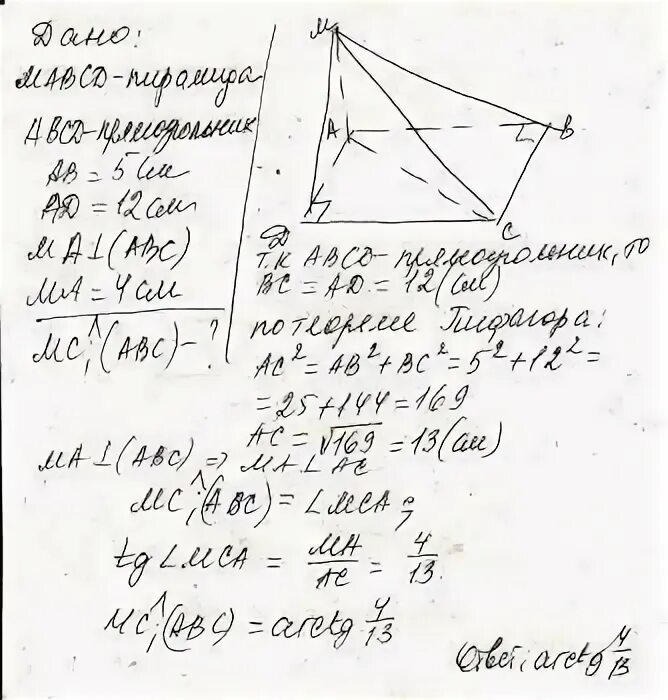 Дано:
MABCD-пирамида
ABCD-прямоугольник
AB = 5 см
AD = 12 см
MA⊥(ABC)
MA = 4 см
MC;^(ABC) - ?
M
A
B
Д
C
т.к ABCD-прямоугольник, то
BC = AD = 12 (см)
по теореме Пифагора:
AC² = AB² + BC² = 5² + 12² =
= 25 + 144 = 169
AC = √169 = 13 (см)
MA⊥(ABC) => MA⊥AC
MC;^(ABC) = ∠MCA
tg∠MCA = MA/AC = 4/13.
MC;^(ABC) = arctg 4/13
Ответ: arctg 4/13